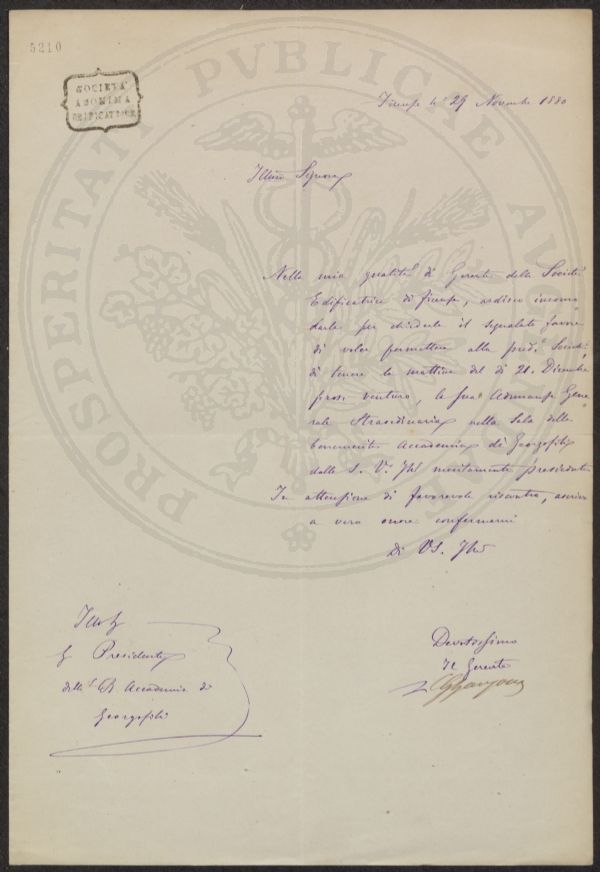 5210
SOCIETÀ
ANONIMA
EDIFICATRICE
PROSPERITATI PVBLICAE AVGENDAE
Firenze li 29 Novembre 1880
Illmo Signore
Nella mia qualità di Gerente della Società
Edificatrice di Firenze, ardisco incomo
darla per chiederle il segnalato favore
di voler permettere alla pred.a Società
di tenere la mattina del dì 21. Dicembre
pross. venturo, la sua Adunanza Gene
rale Straordinaria nella Sala della
benemerita Accademia dei Georgofili
dalla S. V. Illma meritamente presieduta.
In attenzione di favorevole riscontro, ascrivo
a vero onore confermarmi
Di VS. Illma
Devotissimo
Il Gerente
Presidente
della Accademia dei
Georgofili